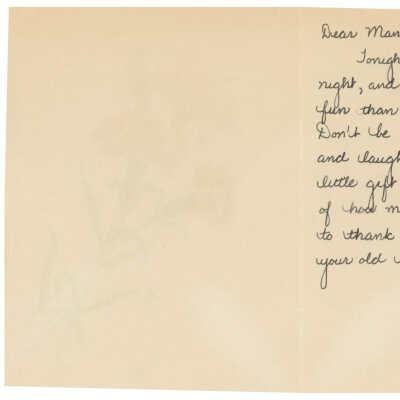 Dear Man
Tonigh
night, and
fun than
Don't be
and laugh
little gift
of how m
to thank
your old